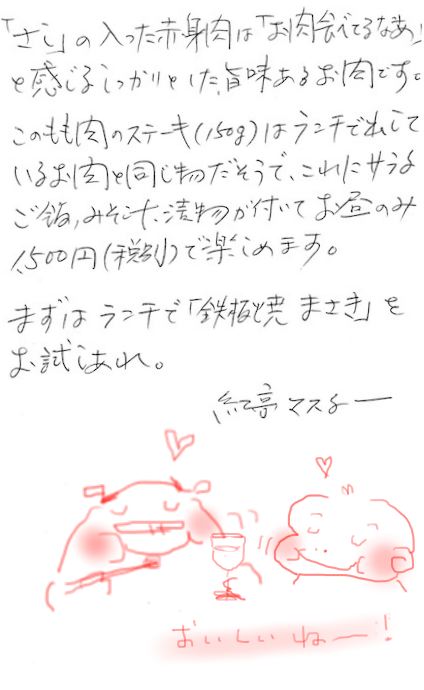 「さし」の入った赤身肉は「お肉食べてるなあ」
と感じるしっかりとした旨味あるお肉です。
このもも肉のステーキ(150g)はランチで出して
いるお肉と同じ物だそうで、これにサラダ
ご飯,みそ汁,漬物が付いてお昼のみ
1,500円(税別)で楽しめます。
まずはランチで「鉄板焼 まさき」を
お試しあれ。
紅亭マスター
おいしいねー!